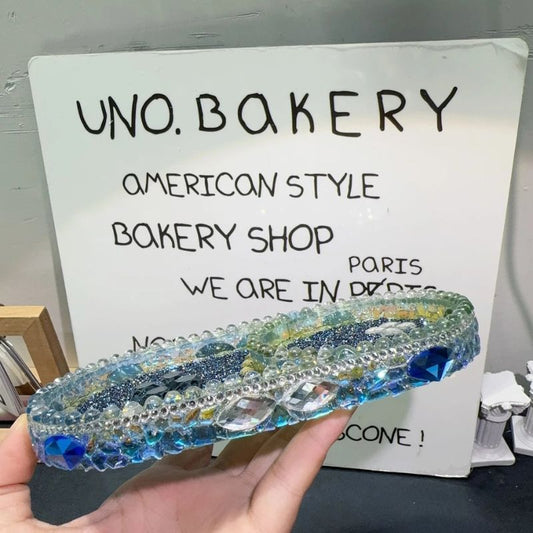 UNO. BAKERY
AMERICAN STYLE
BAKERY SHOP
PARIS
WE ARE IN
SCONE!